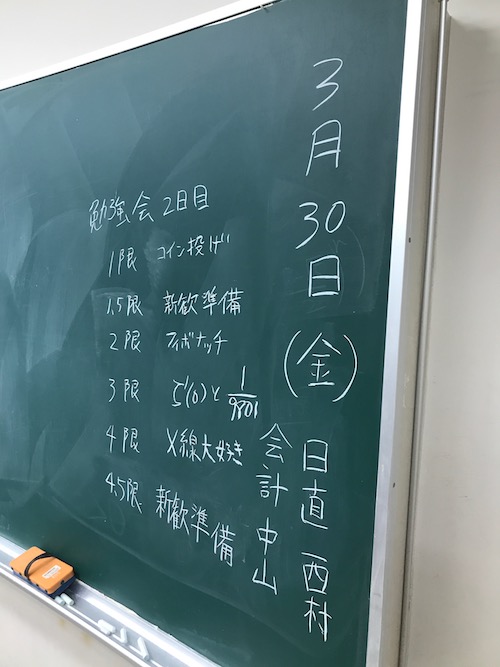 3月30日(金)
日直 西村
会計 中山
勉強会 2日目
1限 コイン投げ
1.5限 新歓準備
2限 フィボナッチ
3限 ζ'(0)と1/9801
4限 X線大好き
4.5限 新歓準備